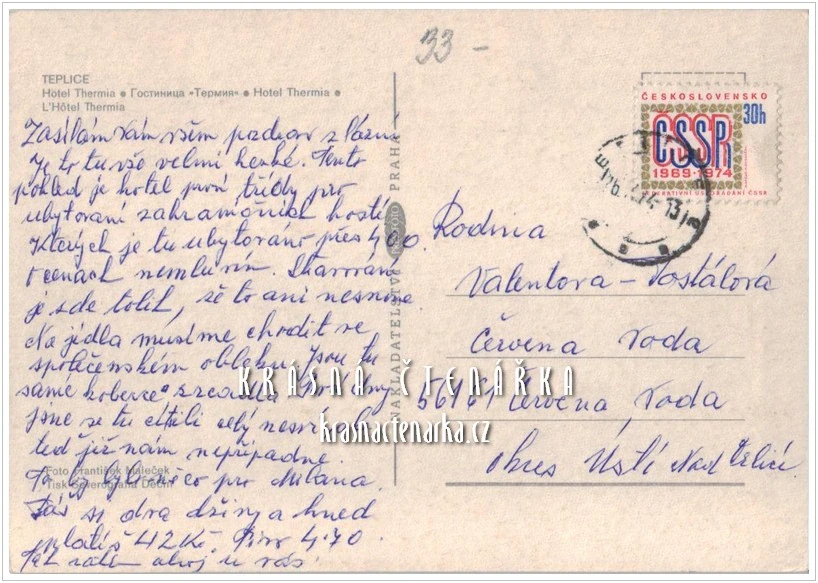 33 –
TEPLICE
Hotel Thermia ● Гостиница «Термия» ● Hotel Thermia ●
L'Hôtel Thermia
Zasílám Vám všem pozdrav z lázní
Je to tu vše velmi hezké. Tento
pohled je hotel první třídy pro
ubytování zahraničních hostí
Kterých je tu ubytováno přes 400.
o cenach nemluvím. Stravování
je zde tolik, že to ani nesníme.
Na jídla musíme chodit ve
společenském obleku. Jsou tu
samé koberce a zrcadla
jsme se tu cítili celý nesví, ale
teď již nám nepřipadne.
To by bylo něco pro Milana.
Dáš si dva džiny a hned
platíš 42 Kč. Pivo 4.70.
Tak zatím ahoj u vás.
Foto František Maleček
Tisk Severografia Děčín
NAKLADATELSTVÍ PRAHA
ČESKOSLOVENSKO
30h
ČSSR
1969-1974
FEDERATIVNÍ USPOŘÁDÁNÍ ČSSR
Rodina
Valentova – Dostálová
Červena Voda
56161 Červená Voda
okres Ústí Nad Orlicí
KRÁSNÁ ČTENÁŘKA
krasnactenarka.cz